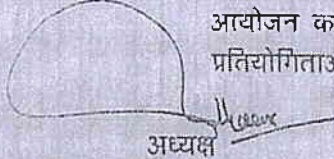 आयोजन क
प्रतियोगिताअ
अध्यक्ष